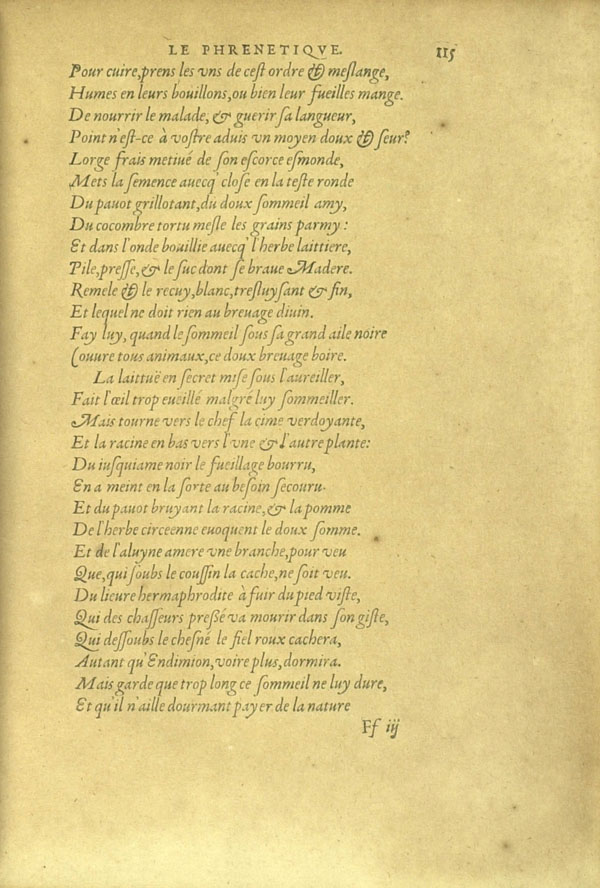 LE PHRENETIQVE. 115
Pour cuire,prens les vns de cest ordre & meslange,
Humes en leurs bouillons,ou bien leur fueilles mange.
De nourrir le malade, & guerir sa langueur,
Point n'est-ce à vostre aduis vn moyen doux & seur?
Lorge frais metiué de son escorce esmonde,
Mets la semence auecq' close en la teste ronde
Du pauot grillotant,du doux sommeil amy,
Du cocombre tortu mesle les grains parmy :
Et dans l'onde bouillie auecq' l'herbe laittiere,
Pile,presse, & le suc dont se braue Madere.
Remele & le recuy,blanc,tresluysant & fin,
Et lequel ne doit rien au breuage diuin.
Fay luy, quand le sommeil sous sa grand aile noire
Couure tous animaux,ce doux breuage boire.
La laittuë en secret mise sous l'aureiller,
Fait l'œil trop eueillé malgré luy sommeiller.
Mais tourne vers le chef la cime verdoyante,
Et la racine en bas vers l'vne & l'autre plante:
Du iusquiame noir le fueillage bourru,
En a meint en la sorte au besoin secouru.
Et du pauot bruyant la racine, & la pomme
De l'herbe circeenne euoquent le doux somme.
Et de l'aluyne amere vne branche,pour veu
Que,qui soubs le coussin la cache,ne soit veu.
Du lieure hermaphrodite à fuir du pied viste,
Qui des chasseurs preßé va mourir dans son giste,
Qui dessoubs le chesné le fiel roux cachera,
Autant qu'Endimion,voire plus,dormira.
Mais garde que trop long ce sommeil ne luy dure,
Et qu'il n'aille dourmant payer de la nature
Ff iij